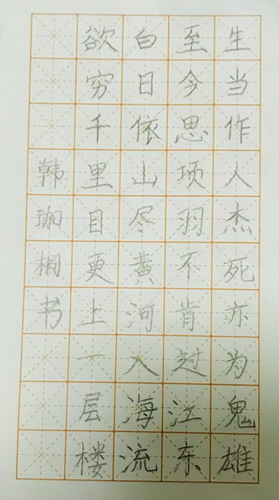 生当作人杰死亦为鬼雄
至今思项羽不肯过江东
白日依山尽黄河入海流
欲穷千里目更上一层楼
韩珈桐书